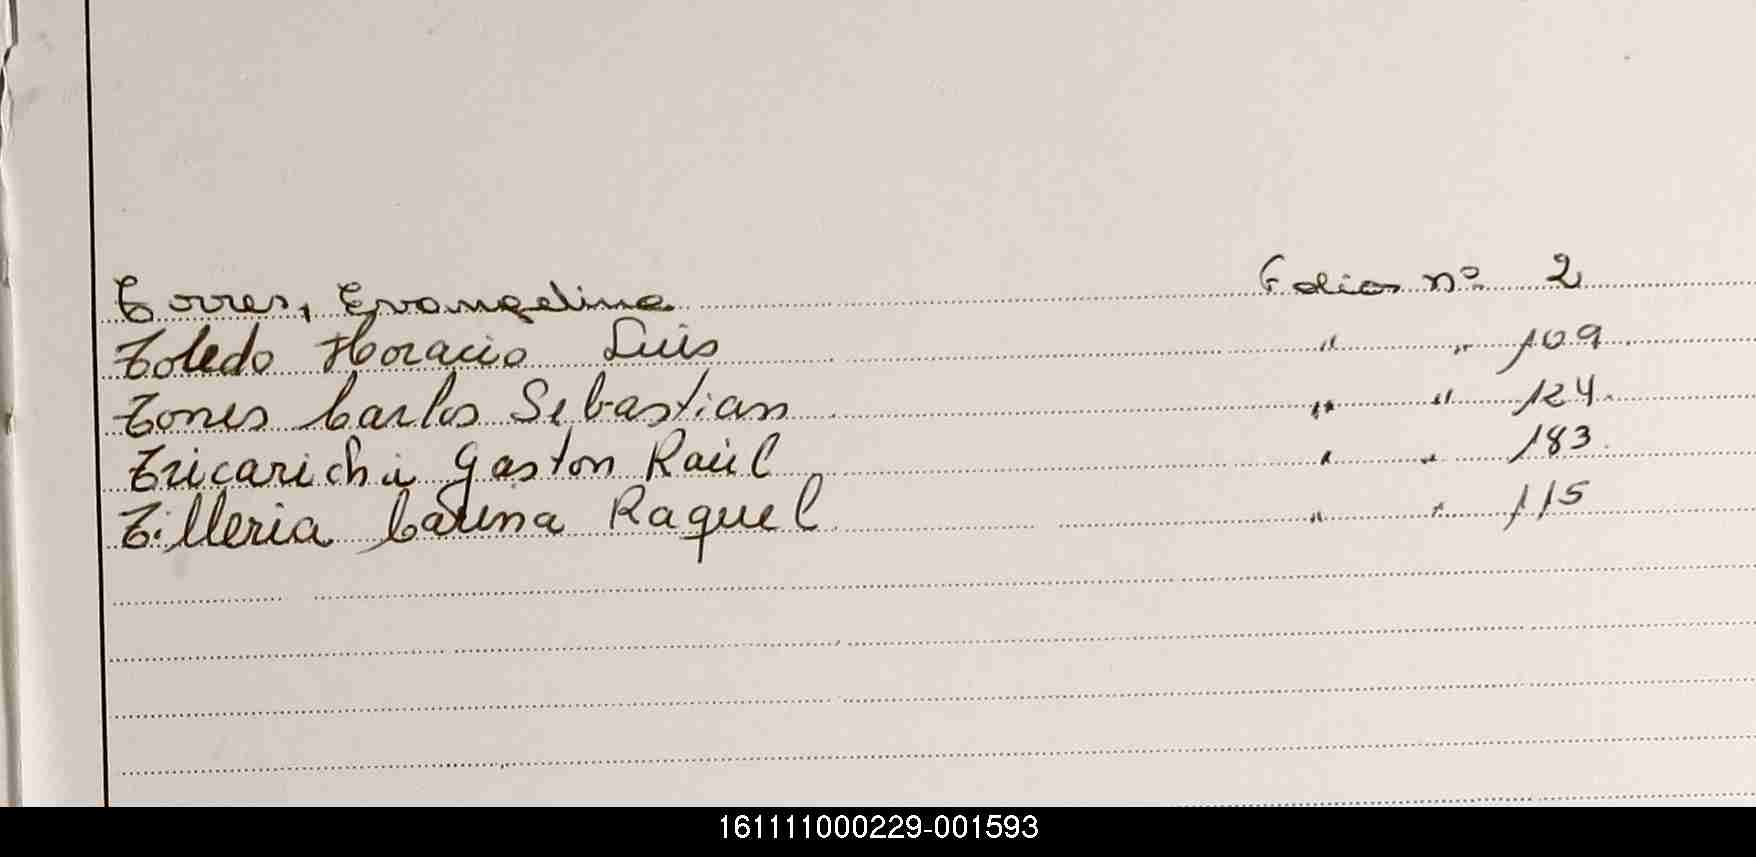 Torres, Evangelina Folios nº 2
Toledo Horacio Luis " " 109
Torres Carlos Sebastian " " 124
Tricarichi Gaston Raúl " " 183
Tilleria Carina Raquel " " 115
161111000229-001593